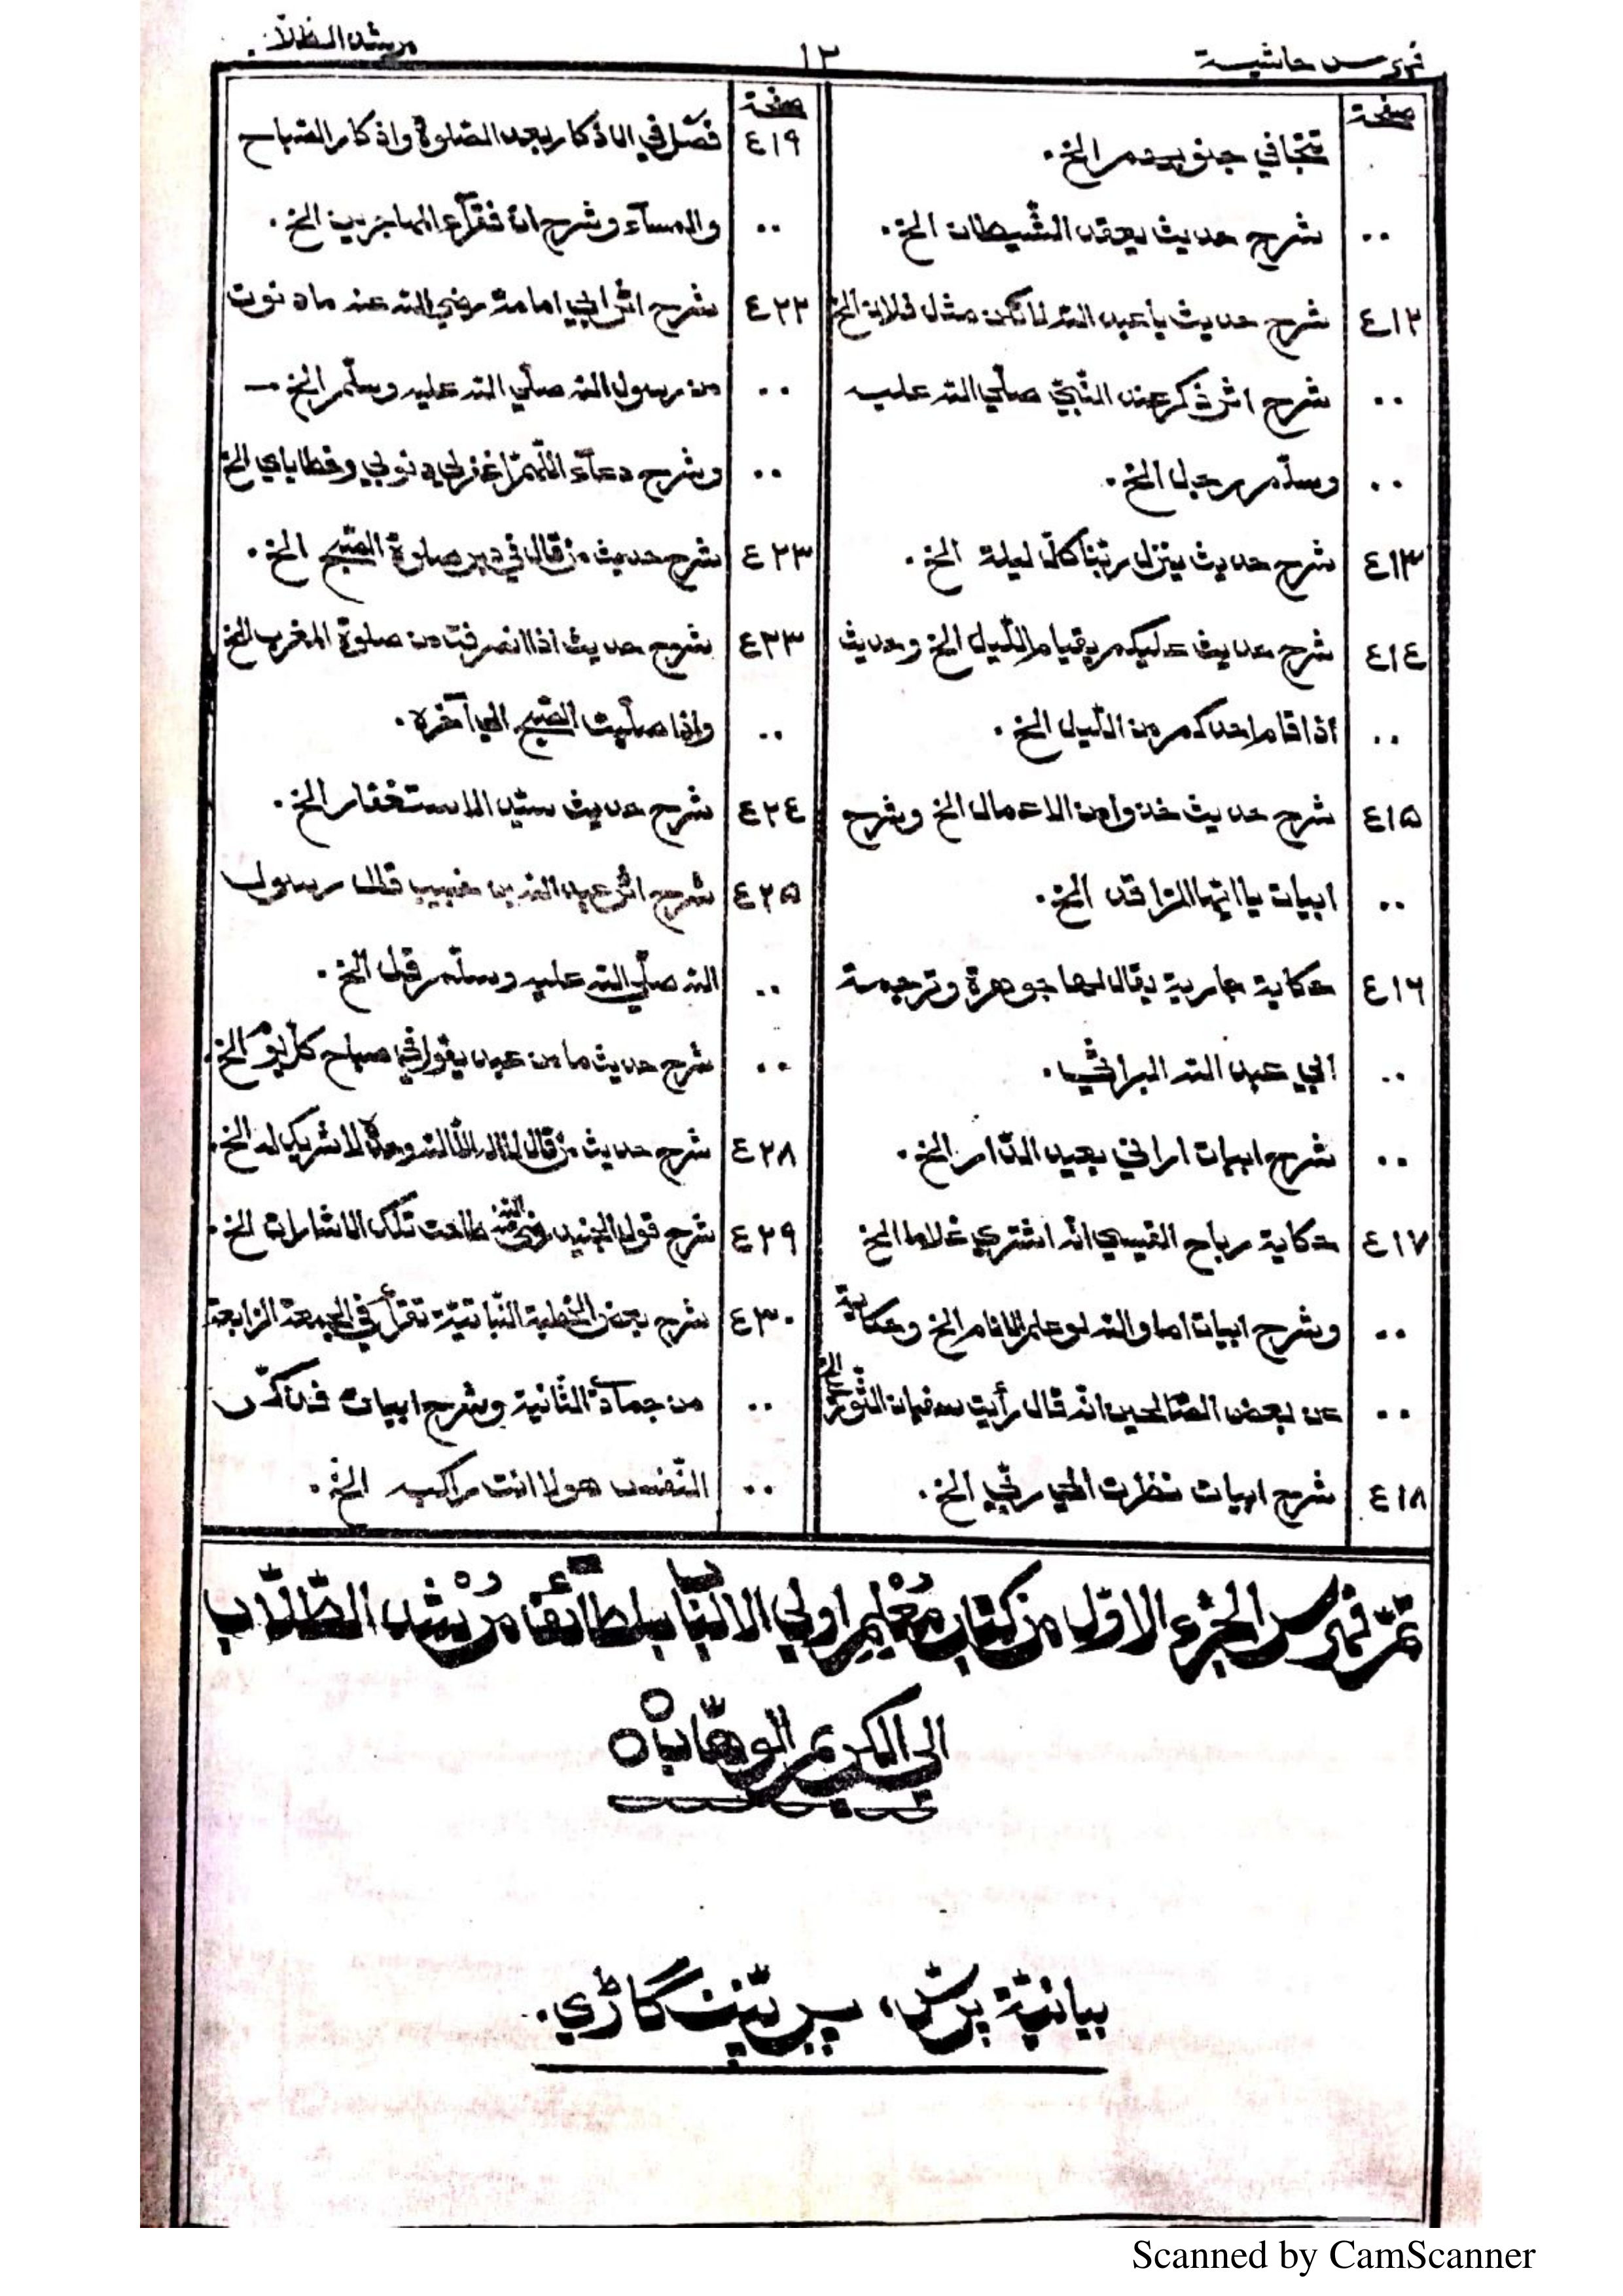 فهرس حاشية
١٢
مرشد الطلاب
صفحة
تتجافي جنوبهم الخ.
.. شرح حديث يعقد الشيطان الخ.
٤١٢ شرح حديث يا عبد الله لا تكن مثل فلان الخ
.. شرح اثر ذكر عند النّبيّ صلّي الله عليه
.. وسلّم رجل الخ.
٤١٣ شرح حديث ينزل ربّنا كلّ ليلة الخ.
٤١٤ شرح حديث عليكم بقيام اللّيل الخ وحديث
.. اذا قام احدكم من اللّيل الخ.
٤١٥ شرح حديث خذوا من الاعمال الخ وشرح
.. ابيات يا ايّها الرّاقد الخ.
٤١٦ حكاية جارية يقال لها جوهرة وترجمة
.. ابي عبد الله البراثي.
.. شرح ابيات اراني بعيد الدّار الخ.
٤١٧ حكاية رباح القيسي انّه اشتري غلاما الخ
.. وشرح ابيات اما والله لو علم الانام الخ وحكاية
.. عن بعض الصّالحين انّه قال رأيت سفيان الثّوريّ الخ
٤١٨ شرح ابيات نظرت الي ربّي الخ.
صفحة
٤١٩ فصّل في الاذكار بعد الصّلوة واذكار الصّباح
.. والمسآء وشرح انّ فقرآء المهاجرين الخ.
٤٢٢ شرح اثر ابي امامة رضي الله عنه ما دنوت
.. من رسول الله صلّي الله عليه وسلّم الخ
.. وشرح دعآء اللّهمّ اغفرلي ذنوبي وخطاياي الخ
٤٢٣ شرح حديث من قال في دبر صلوة الصّبح الخ.
٤٢٣ شرح حديث اذا انصرفت من صلوة المغرب الخ
.. واذا صلّيت الصّبح الي آخره.
٤٢٤ شرح حديث سيّد الاستغفار الخ.
٤٢٥ شرح اثر عبد الله بن خبيب قال رسول
.. الله صلّي الله عليه وسلّم قل الخ.
.. شرح حديث ما من عبد يقول في صباح كلّ يوم الخ.
٤٢٨ شرح حديث من قال لا اله الّا الله وحده لا شريك له الخ.
٤٢٩ شرح قول الجنيد رضي الله عنه طاحت تلك الاشارات الخ.
٤٣٠ شرح بعض الخطبة النّباتيّة تقرأ في الجمعة الرّابعة
.. من جمادي الثّانية وشرح ابيات
.. النّفس الخ.
تمّ فهرس الجزء الاوّل من كتاب مُعْلِم اولي الالباب بلطآئف مُرْشد الطّلّاب
الي الكريم الوهّاب
بيانيّة پرسّ، پرپّننگاڑي.
Scanned by CamScanner